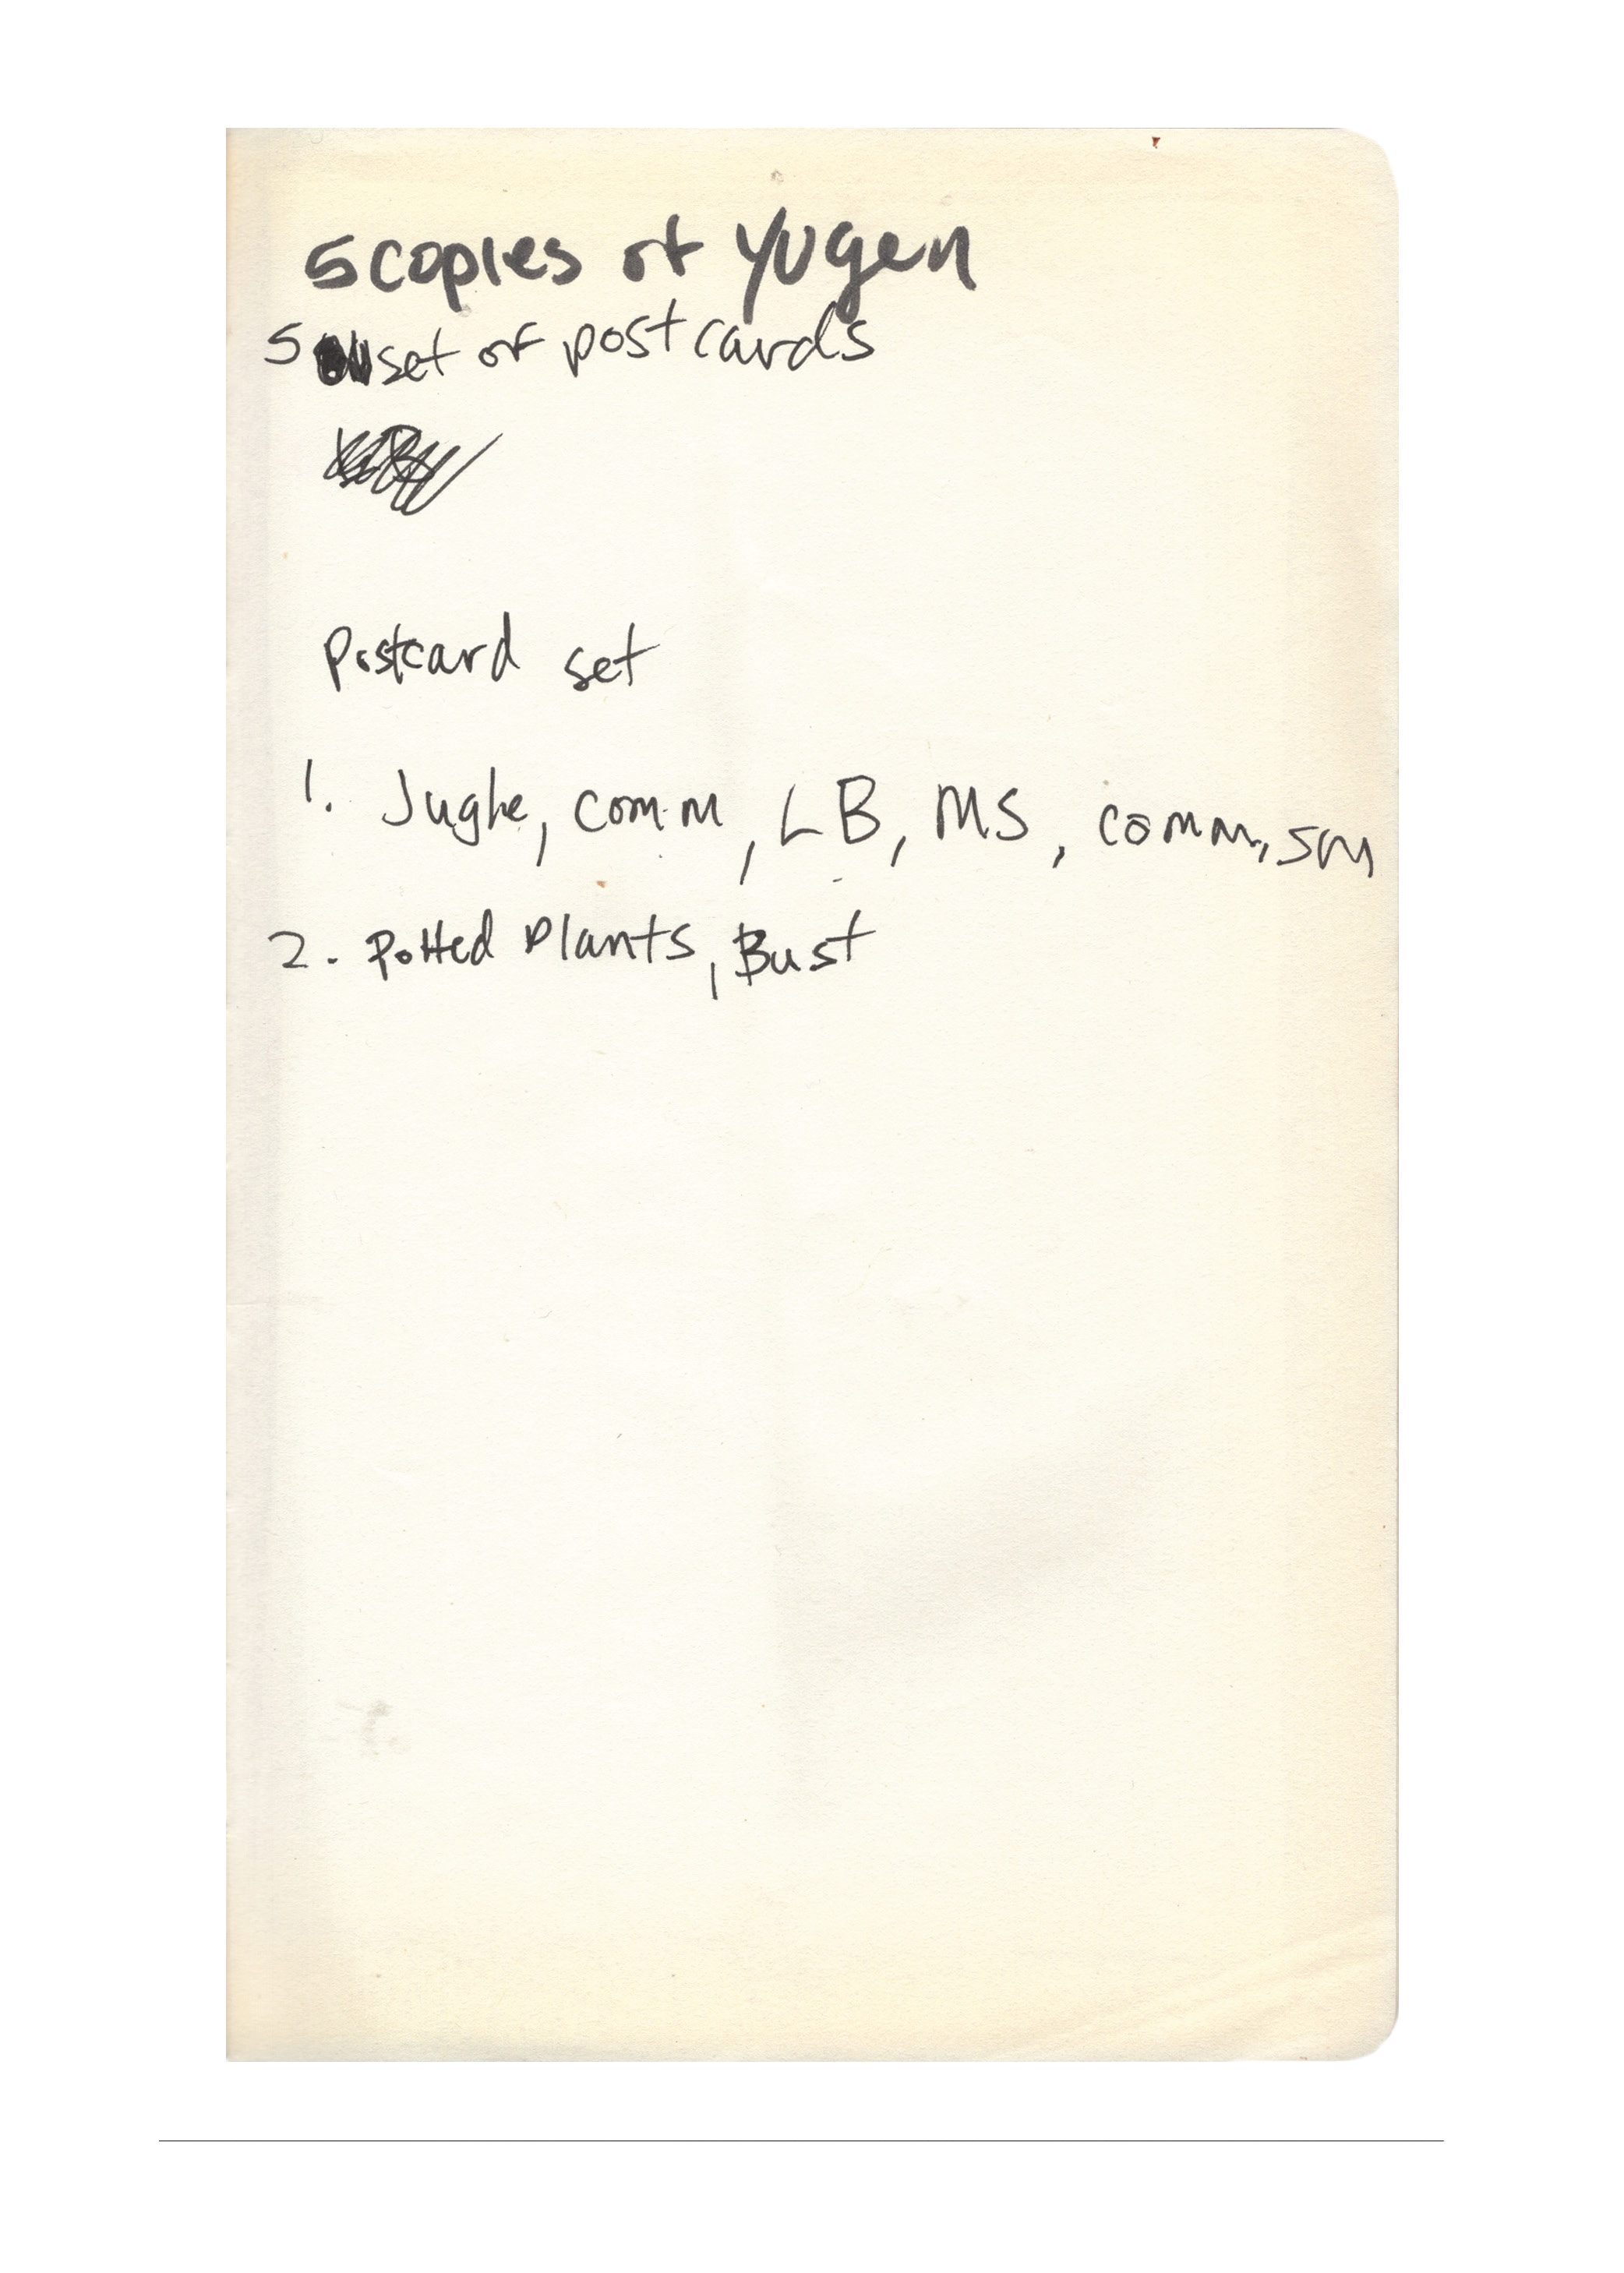 5 copies of Yugen
5 set of postcards
Postcard set
1. Jughe, comm, LB, MS, comm, SM
2. Potted Plants, Bust